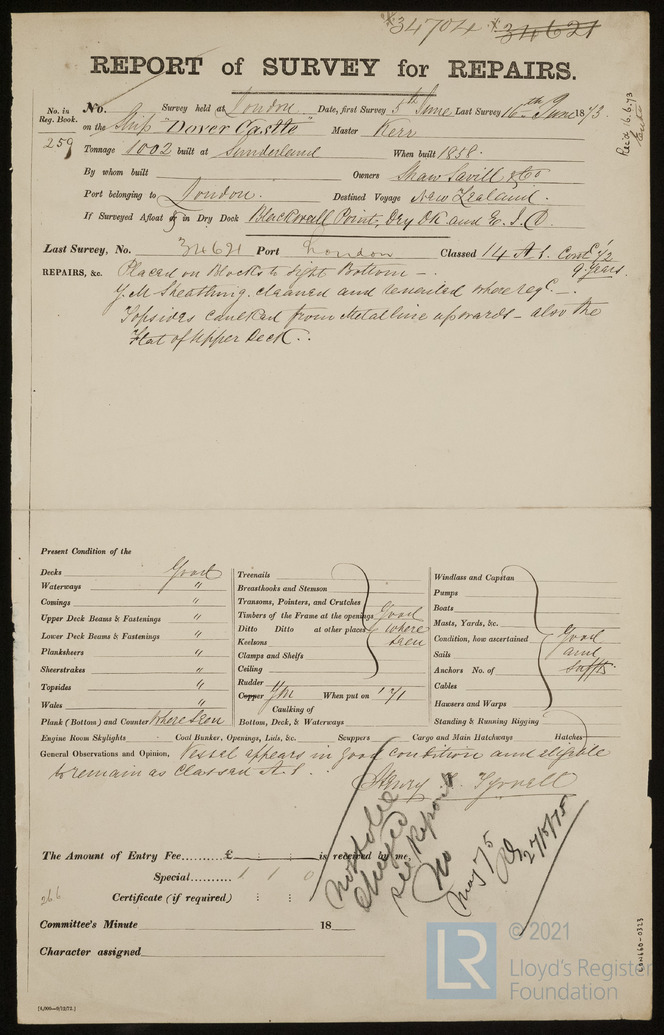 34704 34621
REPORT of SURVEY for REPAIRS.
No. in Reg. Book. No. Survey held at London Date, first Survey 5th June Last Survey 16th June 1873.
259 on the Ship "Dover Castle" Master Kerr
Tonnage 1002 built at Sunderland When built 1858.
By whom built Owners Shaw Savill & Co
Port belonging to London. Destined Voyage New Zealand.
If Surveyed Afloat or in Dry Dock Blackwall Point, Dry Dk and E. I. D
Last Survey, No. 34621 Port London Classed 14 A 1. Contd 1/2
9. years
REPAIRS, &c. Placed on Blocks to sight Bottom -.
Y.M Sheathing. cleaned and renewed where reqd -.
Topsides caulked from Metal line upwards - also the
Flat of Upper Deck.
Rec'd 16.6.73
Present Condition of the
Decks Good
Waterways "
Comings "
Upper Deck Beams & Fastenings "
Lower Deck Beams & Fastenings "
Planksheers "
Sheerstrakes "
Topsides "
Wales "
Plank (Bottom) and Counter Where Seen
Treenails
Breasthooks and Stemson
Transoms, Pointers, and Crutches
Timbers of the Frame at the openings Good
Ditto Ditto at other places where
Keelsons seen
Clamps and Shelfs
Ceiling
Rudder
Copper YM When put on 1871
Caulking of
Bottom, Deck, & Waterways
Windlass and Capstan
Pumps
Boats
Masts, Yards, &c.
Condition, how ascertained Good
Sails and
Anchors No. of Suffts.
Cables
Hawsers and Warps
Standing & Running Rigging
Engine Room Skylights Coal Bunker, Openings, Lids, &c. Scuppers Cargo and Main Hatchways Hatches
General Observations and Opinion, Vessel appears in good condition and eligible
to remain as Classed A.1. Henry Tyrrell
The Amount of Entry Fee.........£ : : is received by me,
Special.......... 1 1 0
266
Certificate (if required) : :
Not to be
charged
see Report
No
May 75
27/5/75
Committee's Minute 18
Character assigned
[4,000-9/12/72.]
LR © 2021
Lloyd's Register
Foundation